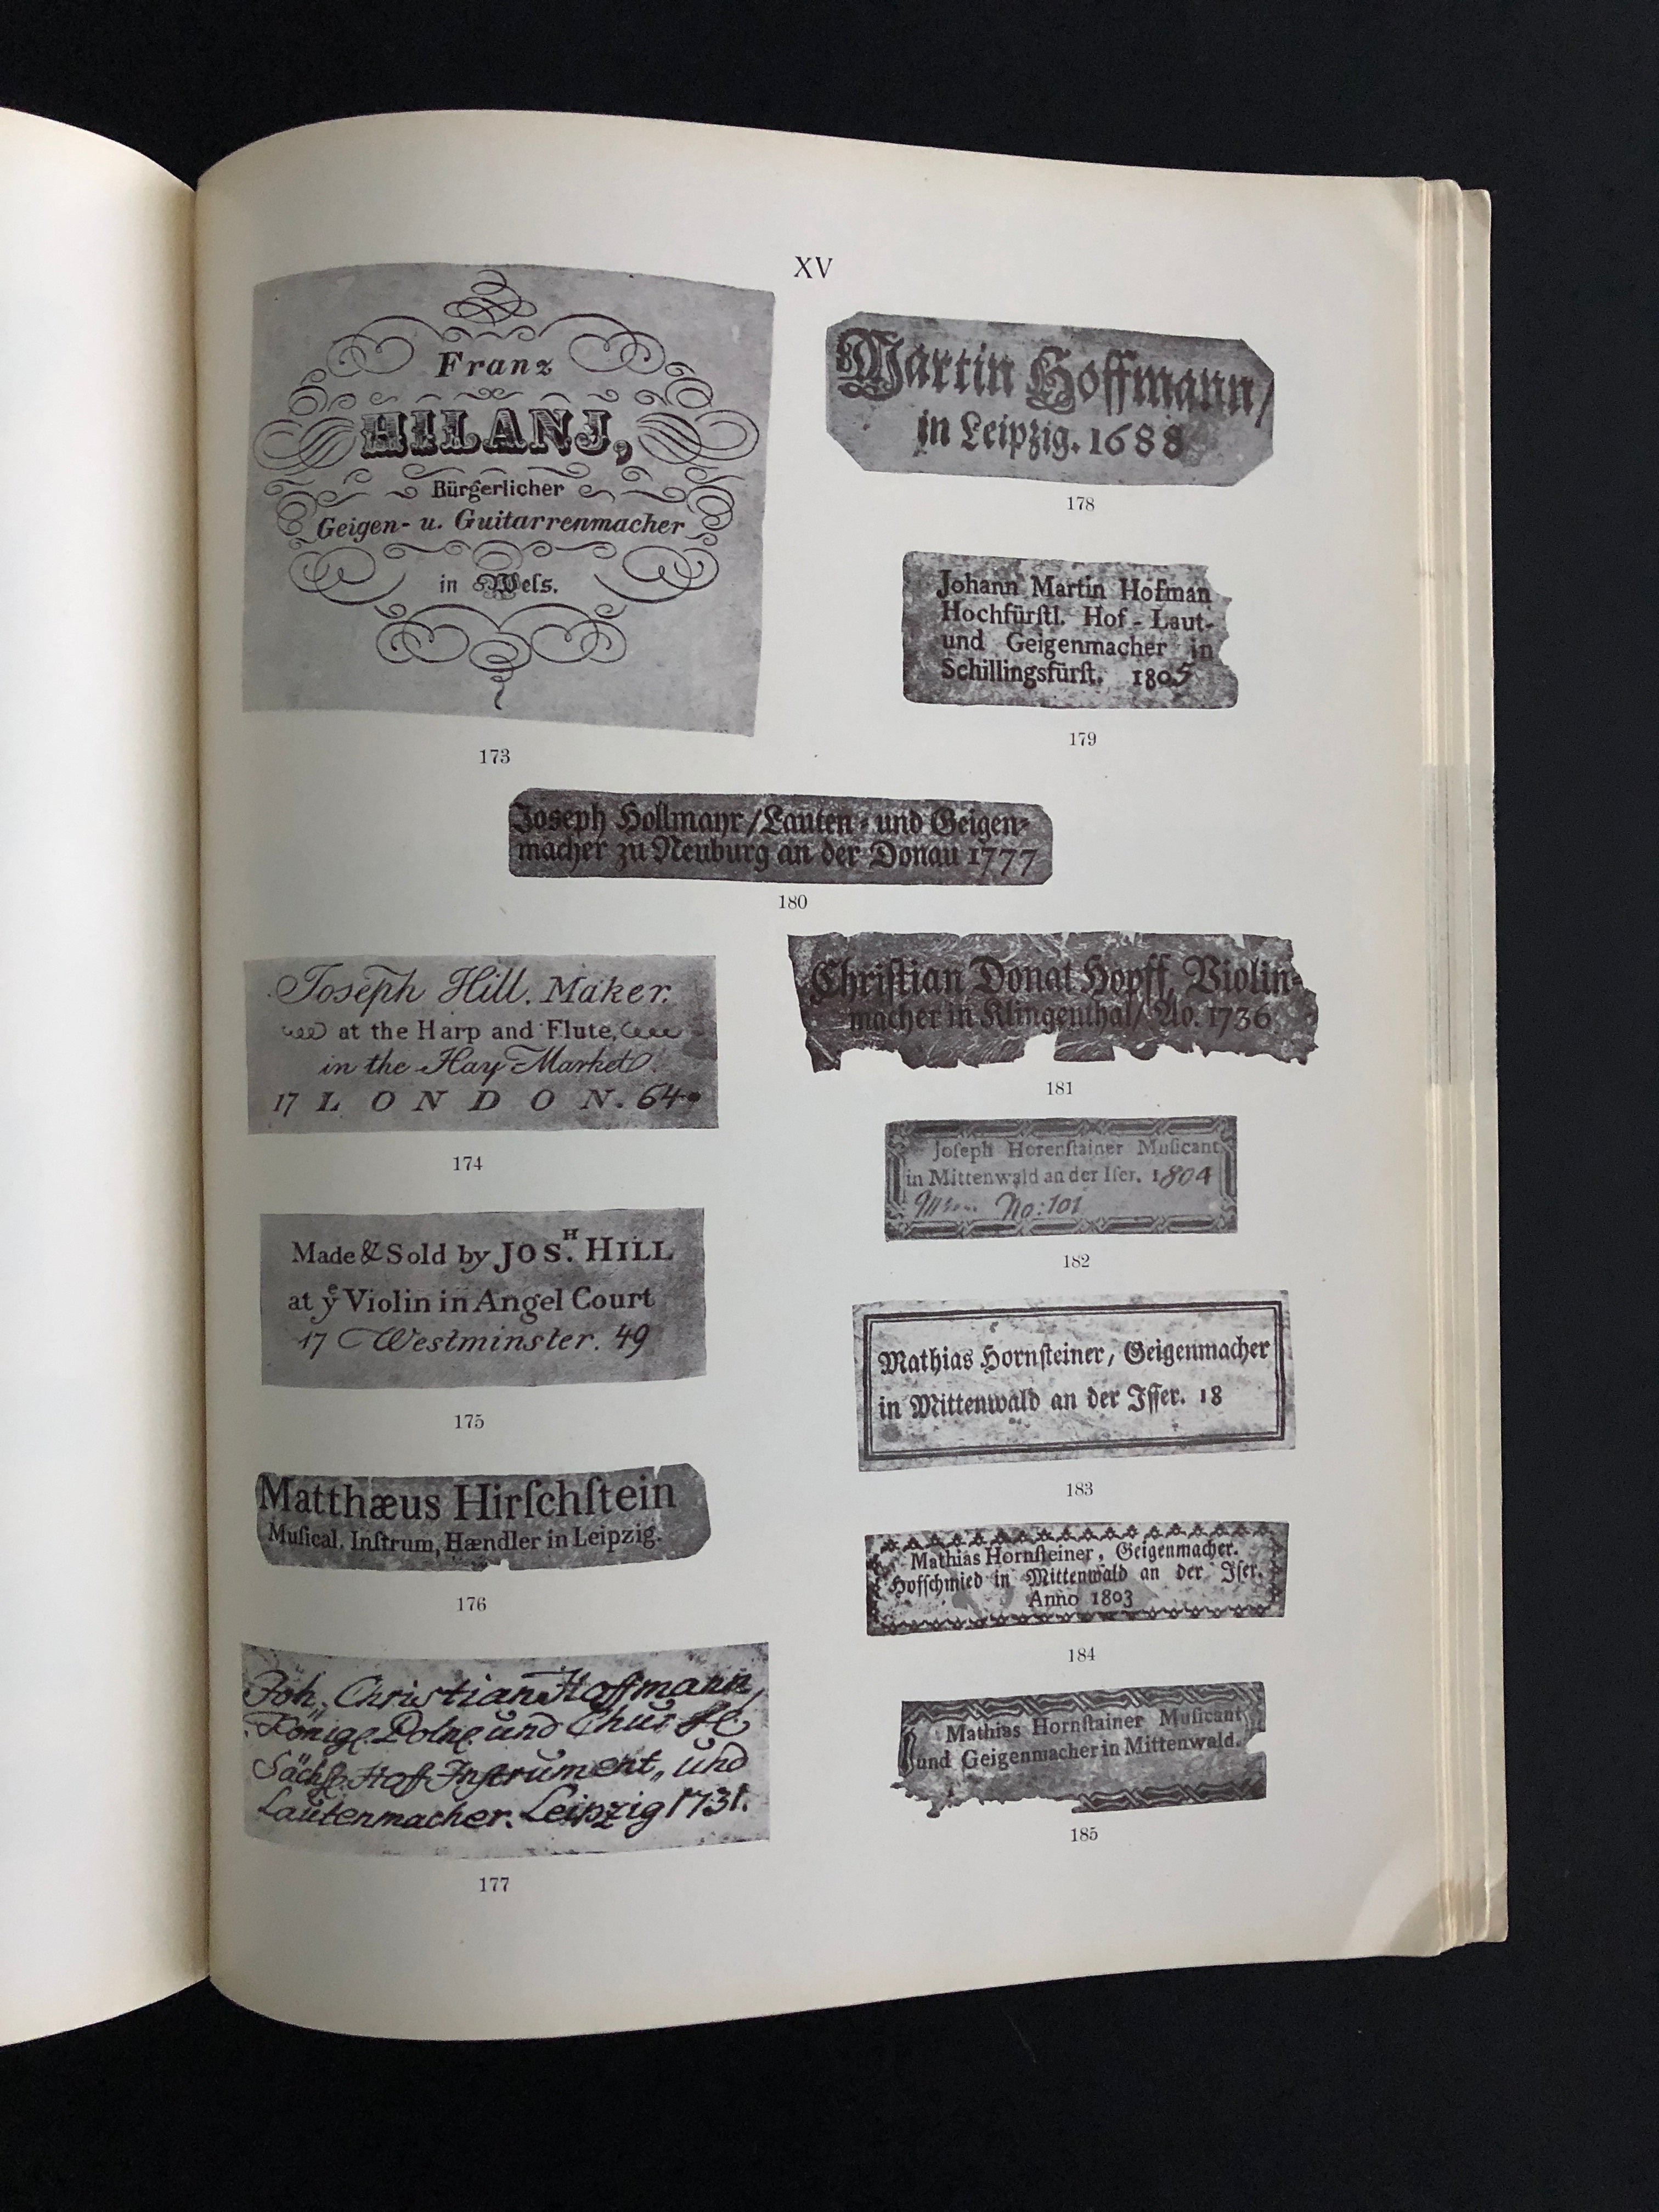 XV
Franz
HILANJ,
Bürgerlicher
Geigen- u. Guitarrenmacher
in Wels.
173
Joseph Hollmayr / Lauten- und Geigen-
macher zu Neuburg an der Donau 1777
180
Joseph Hill. Maker.
at the Harp and Flute,
in the Hay Market
17 LONDON. 64
174
Made & Sold by JOSH. HILL
at ye Violin in Angel Court
17 Westminster. 49
175
Matthæus Hirſchſtein
Muſical. Inſtrum, Hændler in Leipzig.
176
Joh. Christian Hoffmann,
Königl. Polne. und Chur Fl.
Sächs. Hoff Instrument„ und
Lautenmacher. Leipzig 1731.
177
Martin Hoffmann /
in Leipzig. 1688
178
Johann Martin Hofman
Hochfürſtl. Hof - Laut-
und Geigenmacher in
Schillingsfürſt. 1805
179
Chriſtian Donat Hopff, Violin-
macher in Klingenthal / Ao. 1736
181
Joſeph Horenſtainer Muſicant
in Mittenwald an der Iſer. 1804
No: 101
182
Mathias Hornſteiner, Geigenmacher
in Mittenwald an der Iſſer. 18
183
Mathias Hornſteiner, Geigenmacher.
Hofſchmied in Mittenwald an der Iſer.
Anno 1803
184
Mathias Hornſtainer Muſicant
und Geigenmacher in Mittenwald.
185